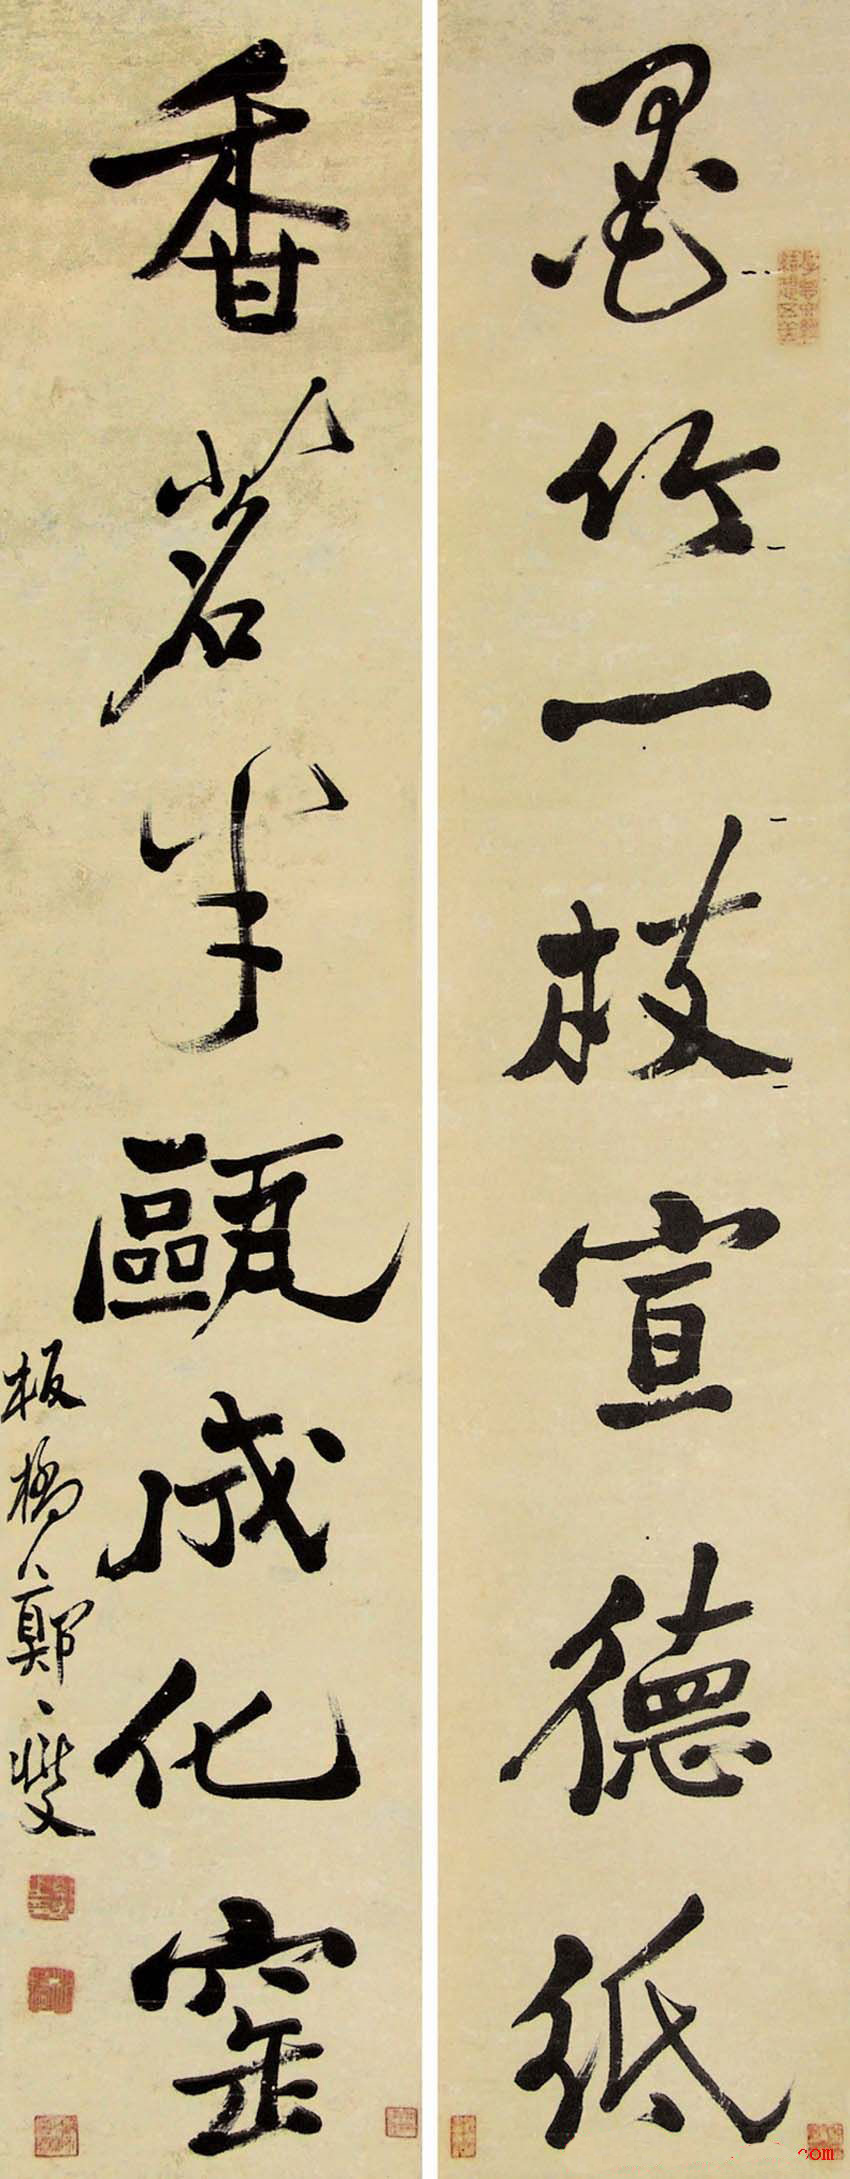 墨竹一枝宣德紙
香茗半甌成化窑
板橋鄭燮
com